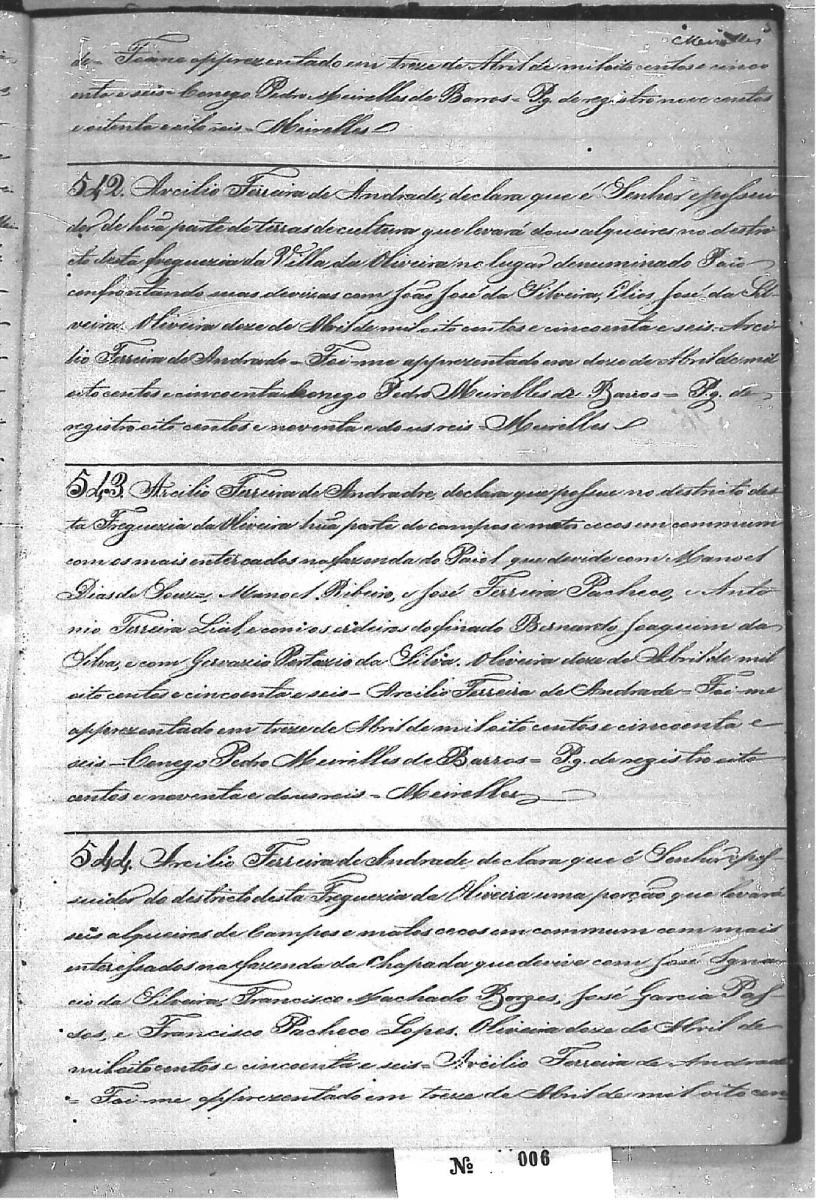 Meirelles
5
de - Foi me apprezentado em treze de Abril de mil oito centos e cinco
enta e seis - Conego Pedro Meirelles de Barros = Pg. de registro nove centos
e oitenta e oito reis - Meirelles
542. Arcilio Ferreira de Andrade, declara que é Senhor e possui
dor de huã parte de terras de cultura que levará dous alqueires no destri
cto desta freguezia da Villa da Oliveira no lugar denuminado Paio
confrontando suas devizas com João José da Silveira, Elias José da Sil-
veira. Oliveira doze de Abril de mil oito centos e cincoenta e seis - Arci-
lio Ferreira de Andrade - Foi-me apprezentado em doze de Abril de mil
oito centos e cincoenta Conego Pedro Meirelles de Barros = Pg. de
registro oito centos e noventa e dous reis - Meirelles
543. Arcilio Ferreira de Andradre, declara que possue no destricto des-
ta Freguezia da Oliveira huã parte de campos e matos cecos em commum
com os mais entercados na fazenda do Paiol que devide com Manoel
Dias de Souza, Manoel Ribeiro, e José Ferreira Pacheco, e Anto
nio Ferreira Lial, e com os erdeiros do finado Bernardo Joaquim da
Silva, e com Gervazio Protazio da Silva. Oliveira doze de Abril de mil
oito centos e cincoenta e seis - Arcilio Ferreira de Andrade = Foi-me
apprezentado em treze de Abril de mil oito centos e cincoenta e
seis - Conego Pedro Meirelles de Barros = Pg. de registro oito
centos e noventa e dous reis = Meirelles
544. Arcilio Ferreira de Andrade declara que é Senhor e pos-
suidor do destricto desta Freguezia da Oliveira uma porção que levará
seis alqueires de Campos e matos cecos em commum com mais
interessados na fazenda da Chapada que devive com José Igna
cio da Silveira, Francisco Machado Borges, José Garcia Pas-
sos, e Francisco Pacheco Lopes. Oliveira doze de Abril de
mil oito centos e cincoenta e seis = Arcilio Ferreira de Andrade
= Foi-me apprezentado em treze de Abril de mil oito cen
Nº 006